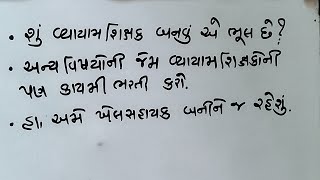 • શું વ્યાયામ શિક્ષક બનવું એ ભૂલ છે?
• અન્ય વિષયોની જેમ વ્યાયામ શિક્ષકોની
પણ કાયમી ભરતી કરો.
• હા, અમે ખેલસહાયક બનીને જ રહેશું.